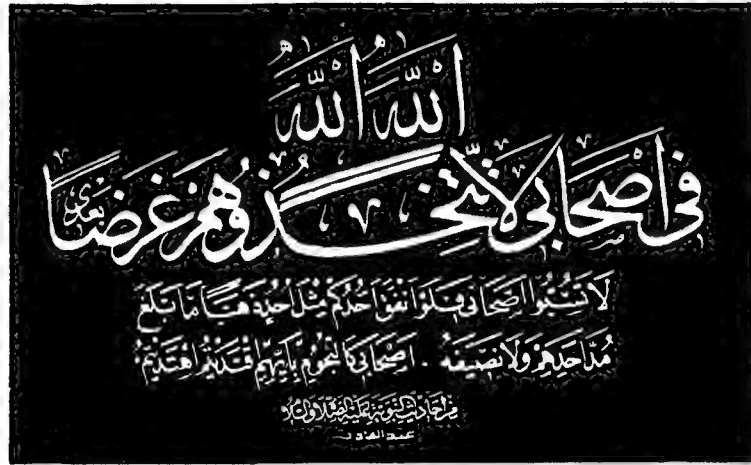 الله الله
في اصحابي لا تتخذوهم غرضا بعدي
لا تسبوا اصحابي فلو انفق احدكم مثل احد ذهبا ما بلغ
مد احدهم ولا نصيفه . اصحابي كالنجوم بايهم اقتديتم اهتديتم
من احاديث النبوية عليه